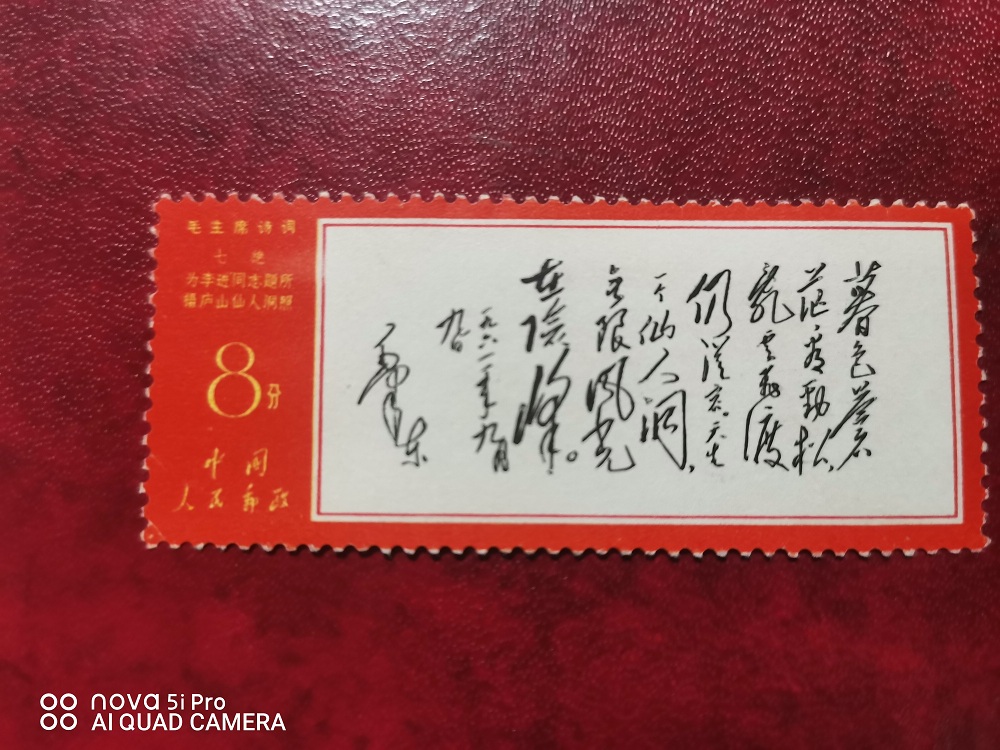 毛主席诗词
七绝
为李进同志题所
摄庐山仙人洞照
8分
中国
人民邮政
暮色苍
茫看劲松，
乱云飞渡
仍从容。天生
一个仙人洞，
无限风光
在险峰。
一九六一年九月
九日
毛泽东
nova 5i Pro
AI QUAD CAMERA